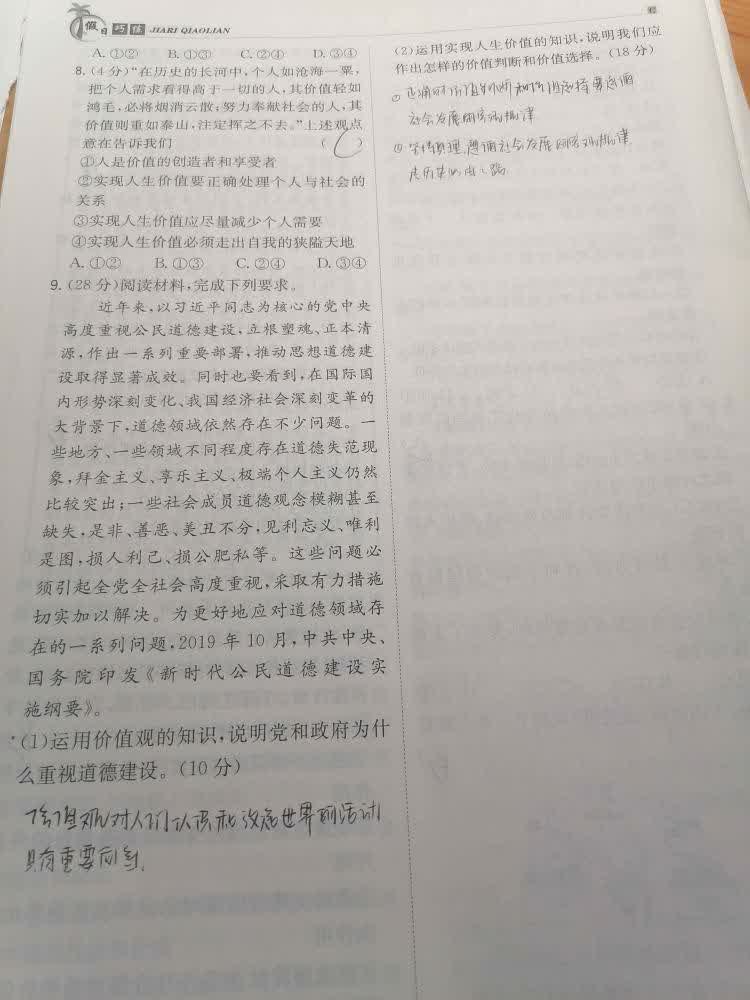 假日巧练 JIARI QIAOLIAN
A. ①② B. ①③ C. ②④ D. ③④
8. (4分)“在历史的长河中,个人如沧海一粟,
把个人需求看得高于一切的人,其价值轻如
鸿毛,必将烟消云散;努力奉献社会的人,其
价值则重如泰山,注定挥之不去。”上述观点
意在告诉我们 ( C )
①人是价值的创造者和享受者
②实现人生价值要正确处理个人与社会的
关系
③实现人生价值应尽量减少个人需要
④实现人生价值必须走出自我的狭隘天地
A. ①② B. ①③ C. ②④ D. ③④
9. (28分)阅读材料,完成下列要求。
近年来,以习近平同志为核心的党中央
高度重视公民道德建设,立根塑魂、正本清
源,作出一系列重要部署,推动思想道德建
设取得显著成效。同时也要看到,在国际国
内形势深刻变化、我国经济社会深刻变革的
大背景下,道德领域依然存在不少问题。一
些地方、一些领域不同程度存在道德失范现
象,拜金主义、享乐主义、极端个人主义仍然
比较突出;一些社会成员道德观念模糊甚至
缺失,是非、善恶、美丑不分,见利忘义、唯利
是图,损人利己、损公肥私等。这些问题必
须引起全党全社会高度重视,采取有力措施
切实加以解决。为更好地应对道德领域存
在的一系列问题,2019年10月,中共中央、
国务院印发《新时代公民道德建设实
施纲要》。
(1)运用价值观的知识,说明党和政府为什
么重视道德建设。(10分)
价值观对人们认识和改造世界的活动
具有重要向
(2)运用实现人生价值的知识,说明我们应
作出怎样的价值判断和价值选择。(18分)
① 正确的价值判断和价值选择要遵循
社会发展的客观规律
② 遵循社会发展的客观规律
走历史必由之路